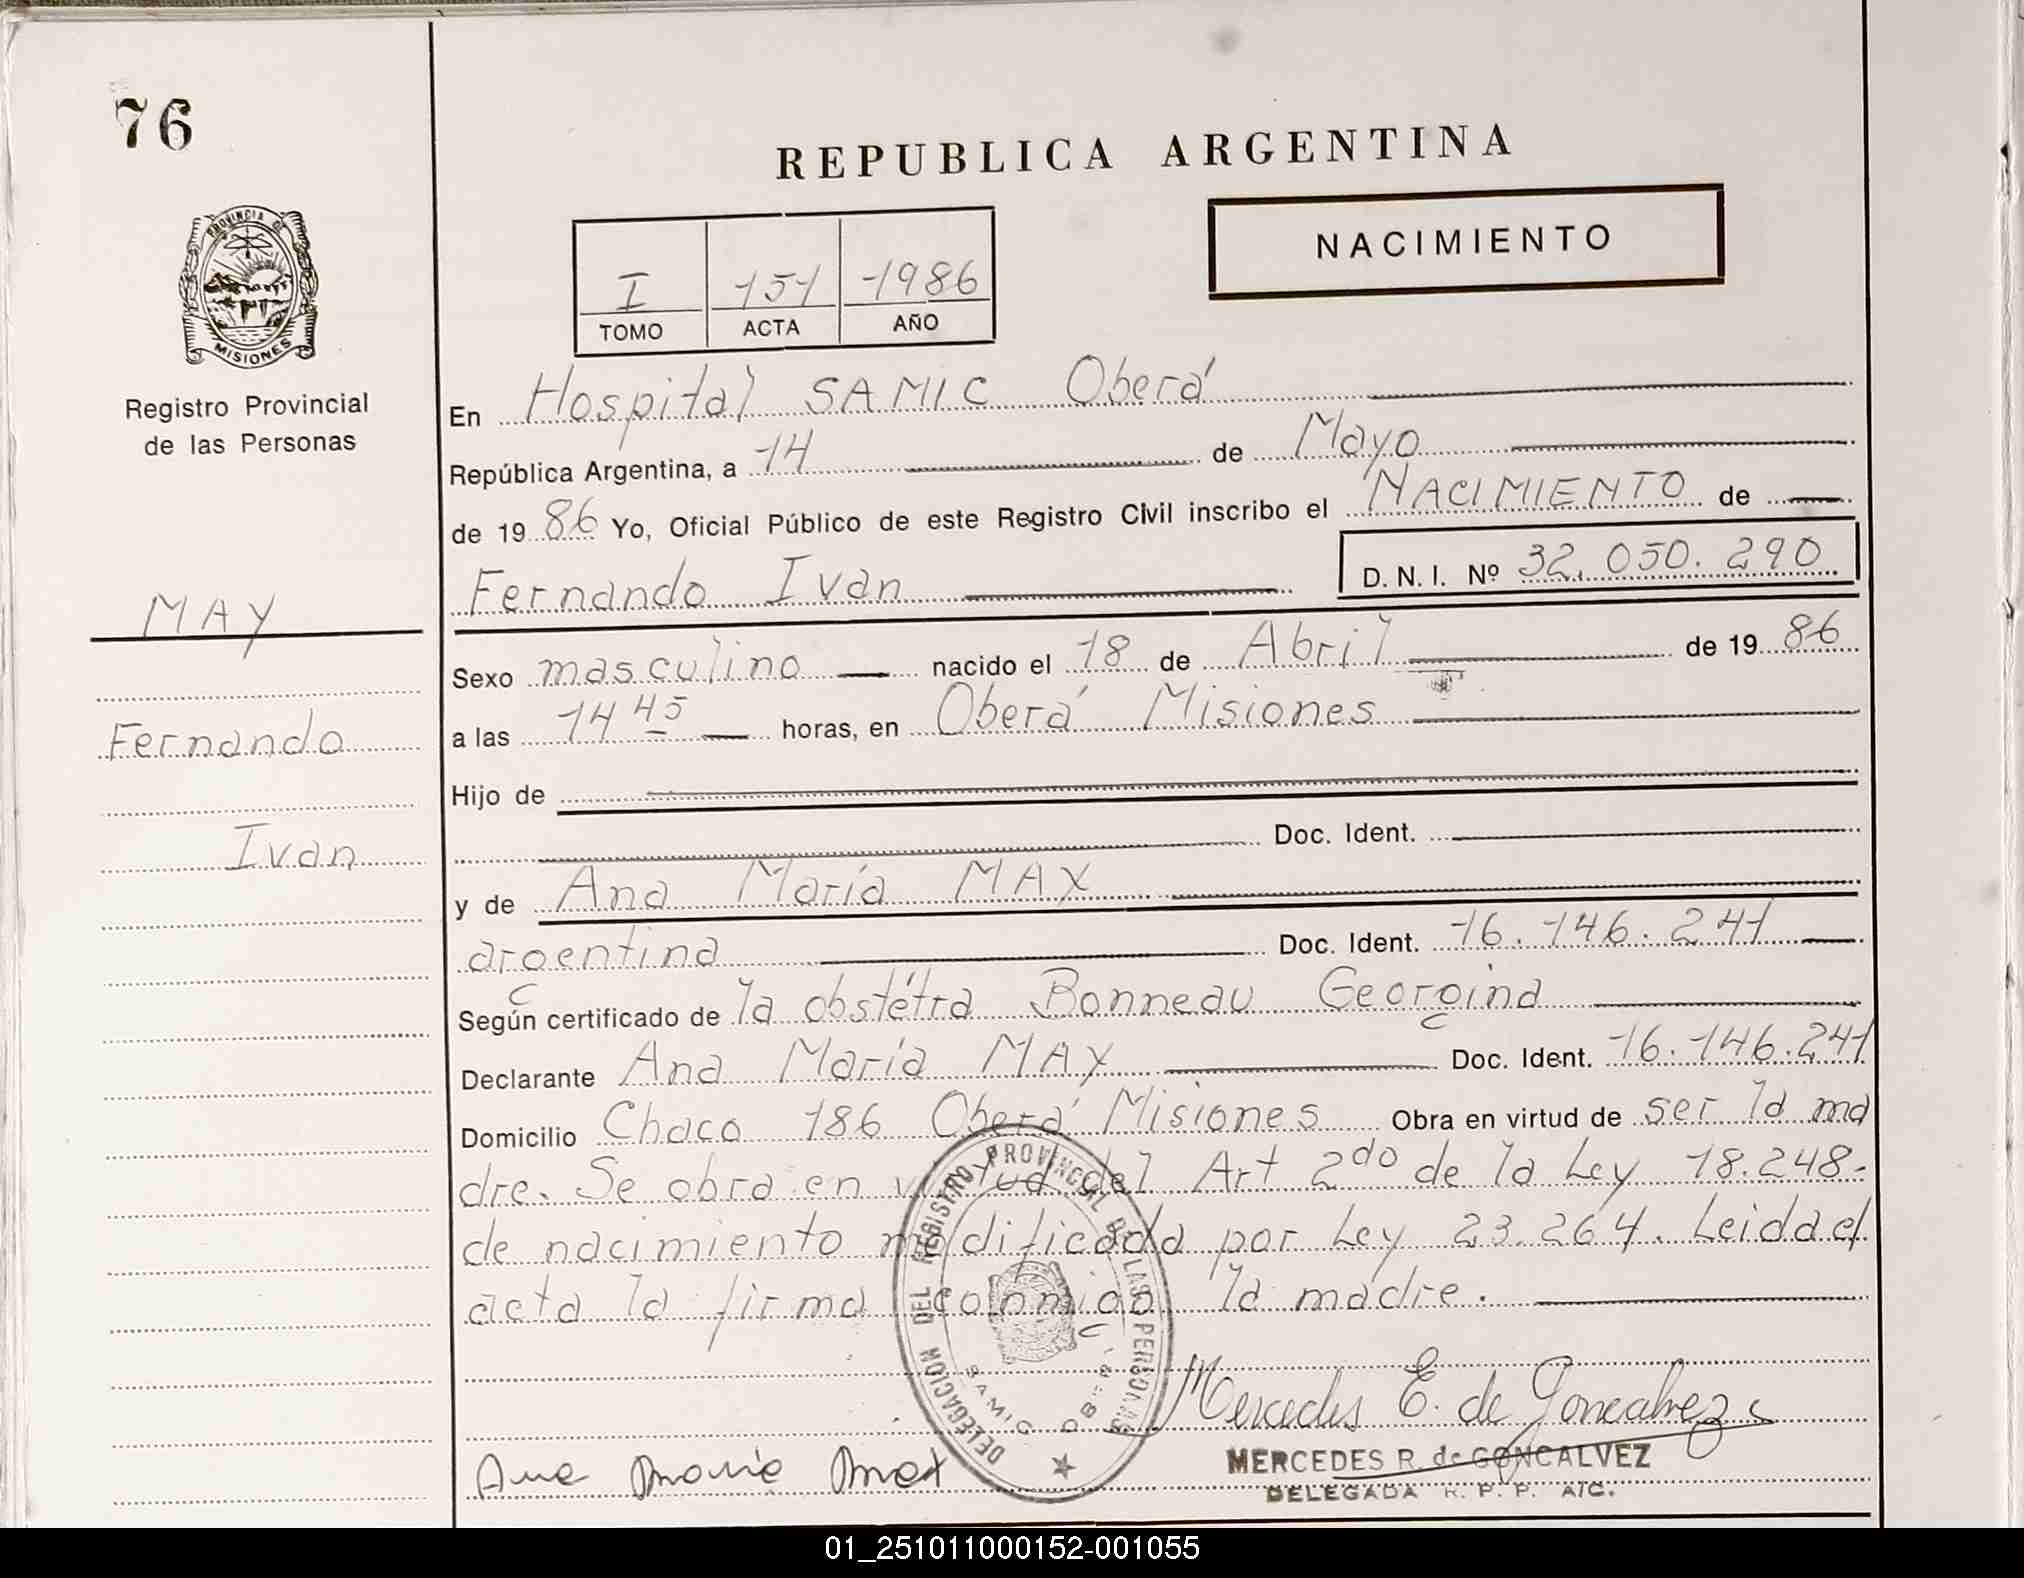 76
REPUBLICA ARGENTINA
PROVINCIA DE
MISIONES
Registro Provincial
de las Personas
NACIMIENTO
I 151 1986
TOMO ACTA AÑO
En Hospital SAMIC Oberá
República Argentina, a 14 de Mayo
de 1986 Yo, Oficial Público de este Registro Civil inscribo el NACIMIENTO de
Fernando Ivan D. N. I. Nº 32.050.290
MAY
Fernando
Ivan
Sexo masculino nacido el 18 de Abril de 1986
a las 14 45 horas, en Oberá Misiones
Hijo de
Doc. Ident.
y de Ana María MAX
argentina Doc. Ident. 16.146.241
Según certificado de la obstétra Bonneau Georgina
Declarante Ana María MAX Doc. Ident. 16.146.241
Domicilio Chaco 186 Oberá Misiones Obra en virtud de ser la ma
dre. Se obra en virtud del Art 2do de la Ley 18.248-
de nacimiento modificada por Ley 23.264. Leida el
acta la firma conmigo la madre.
DELEGACION DEL REGISTRO PROVINCIAL DE LAS PERSONAS
SAMIC OBERA
Mercedes E. de Goncalvez
Ana Maria Max
MERCEDES R. de GONCALVEZ
DELEGADA R. P. P. ATC.
01_251011000152-001055